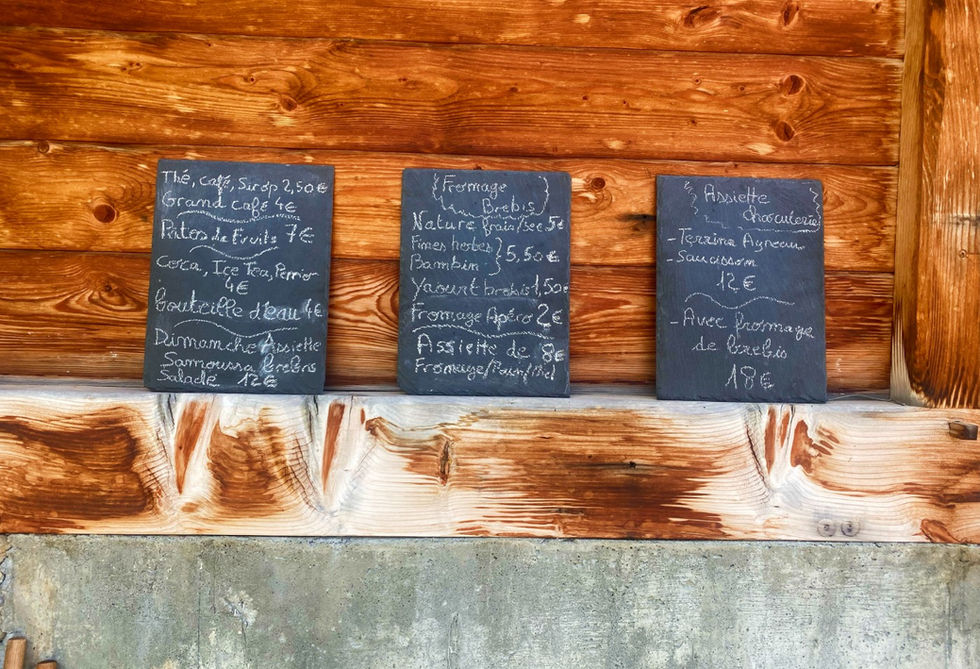 Thé, café, Sirop 2,50€
Grand café 4€
Pâtes de Fruits 7€
Coca, Ice Tea, Perrier
4€
bouteille d'eau 4€
Dimanche Assiette
Samoussa brebis
Salade 12€
Fromage
Brebis
Nature frais/sec 5€
Fines herbes
Bambin
5,50€
Yaourt brebis 1,50€
Fromage Apéro 2€
Assiette de 8€
Fromage/Pain/Miel
Assiette
Charcuterie
- Terrine Agneau
- Saucisson
12€
- Avec fromage
de brebis
18€